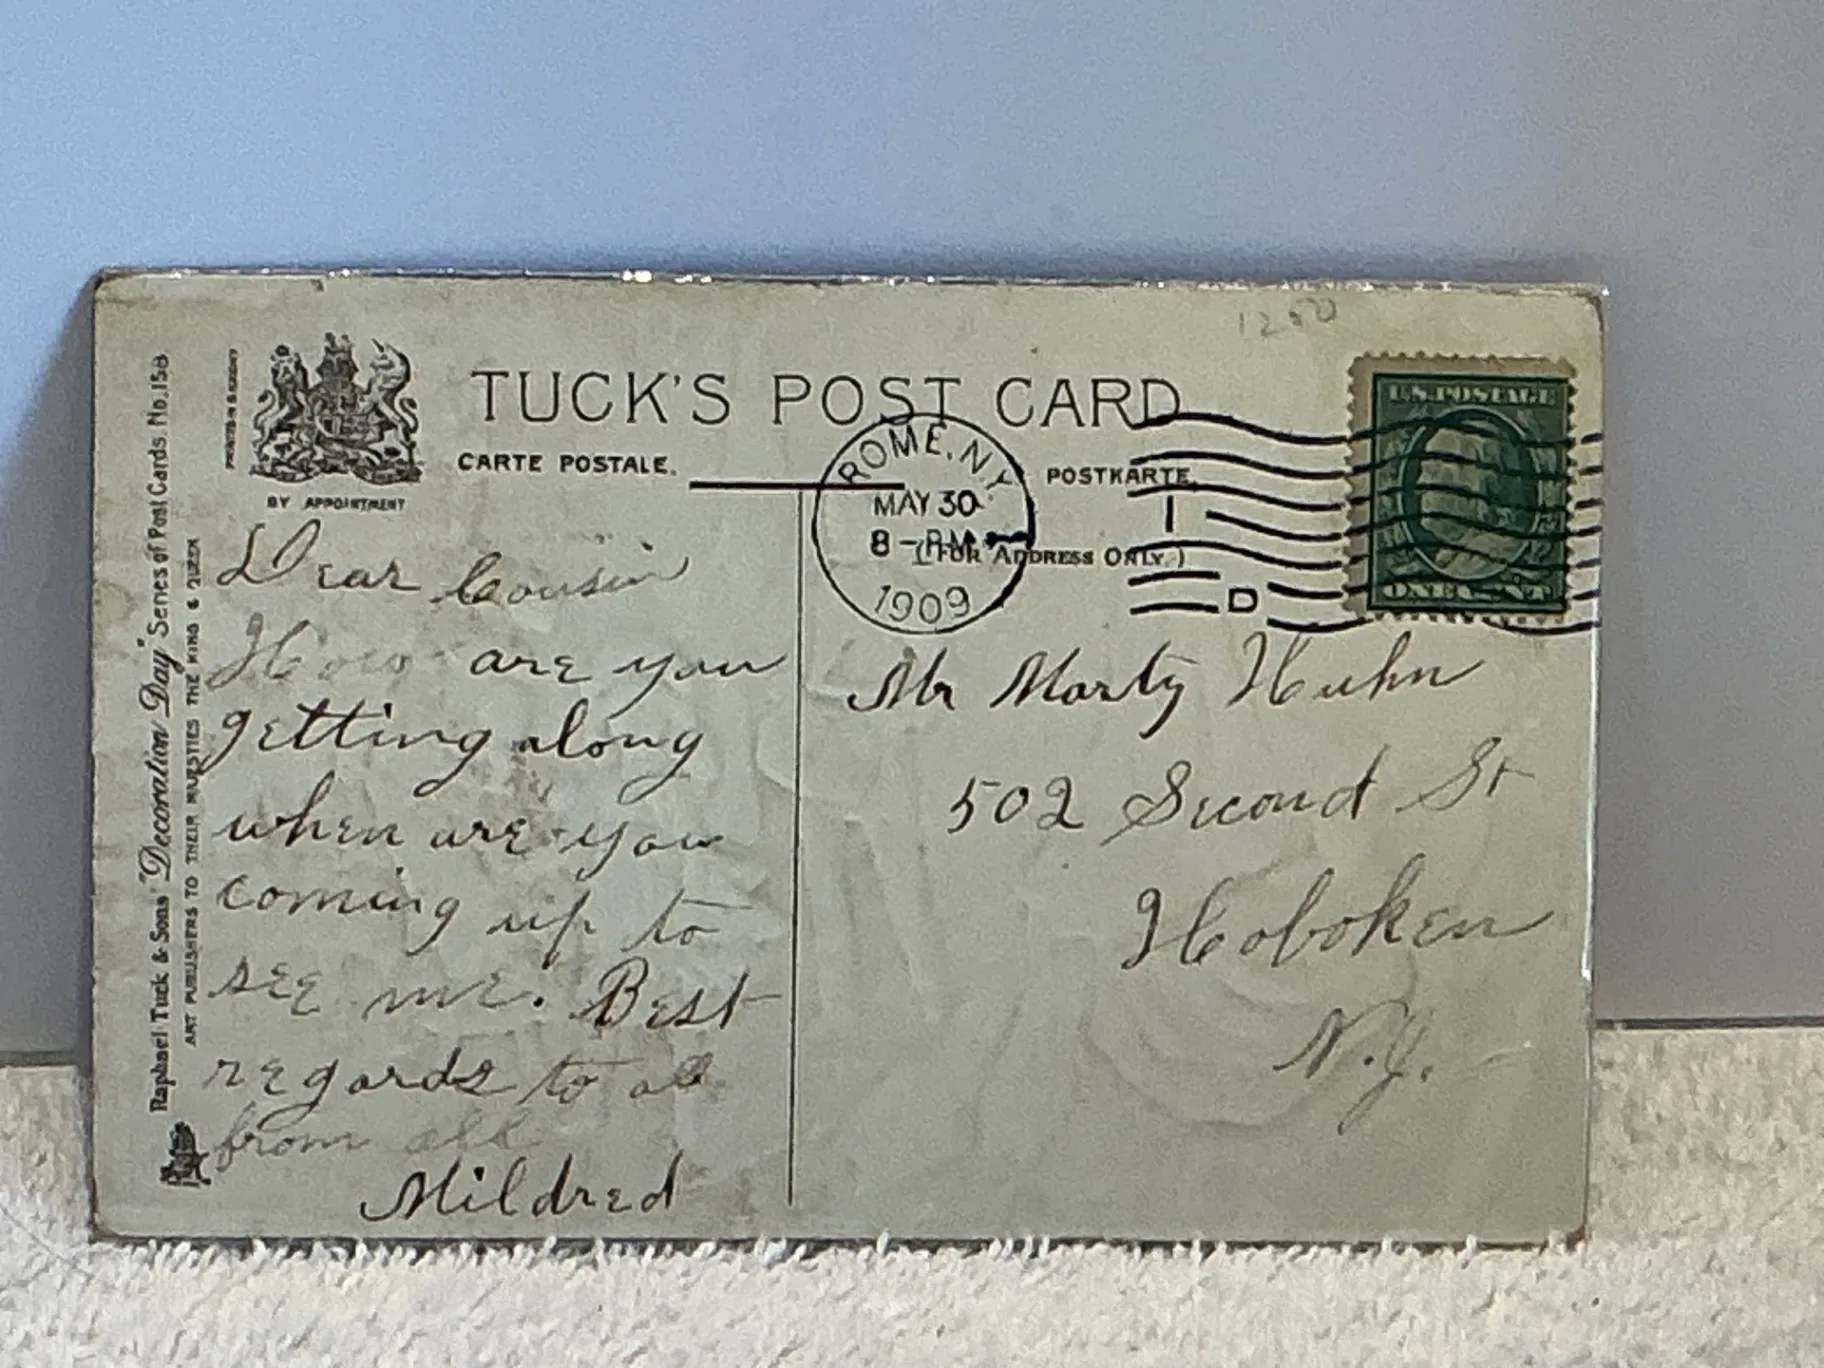 1250
TUCK'S POST CARD
CARTE POSTALE.
POSTKARTE.
(FOR ADDRESS ONLY.)
BY APPOINTMENT
Raphael Tuck & Sons' "Decoration Day" Series of Post Cards. No. 158
ART PUBLISHERS TO THEIR MAJESTIES THE KING & QUEEN
ROME, N.Y.
MAY 30
8 - PM
1909
D
U.S. POSTAGE
ONE CENT
Dear Cousin
How are you
getting along
when are you
coming up to
see me. Best
regards to all
from all
Mildred
Mr Marty Huhn
502 Second St
Hoboken
N.J.